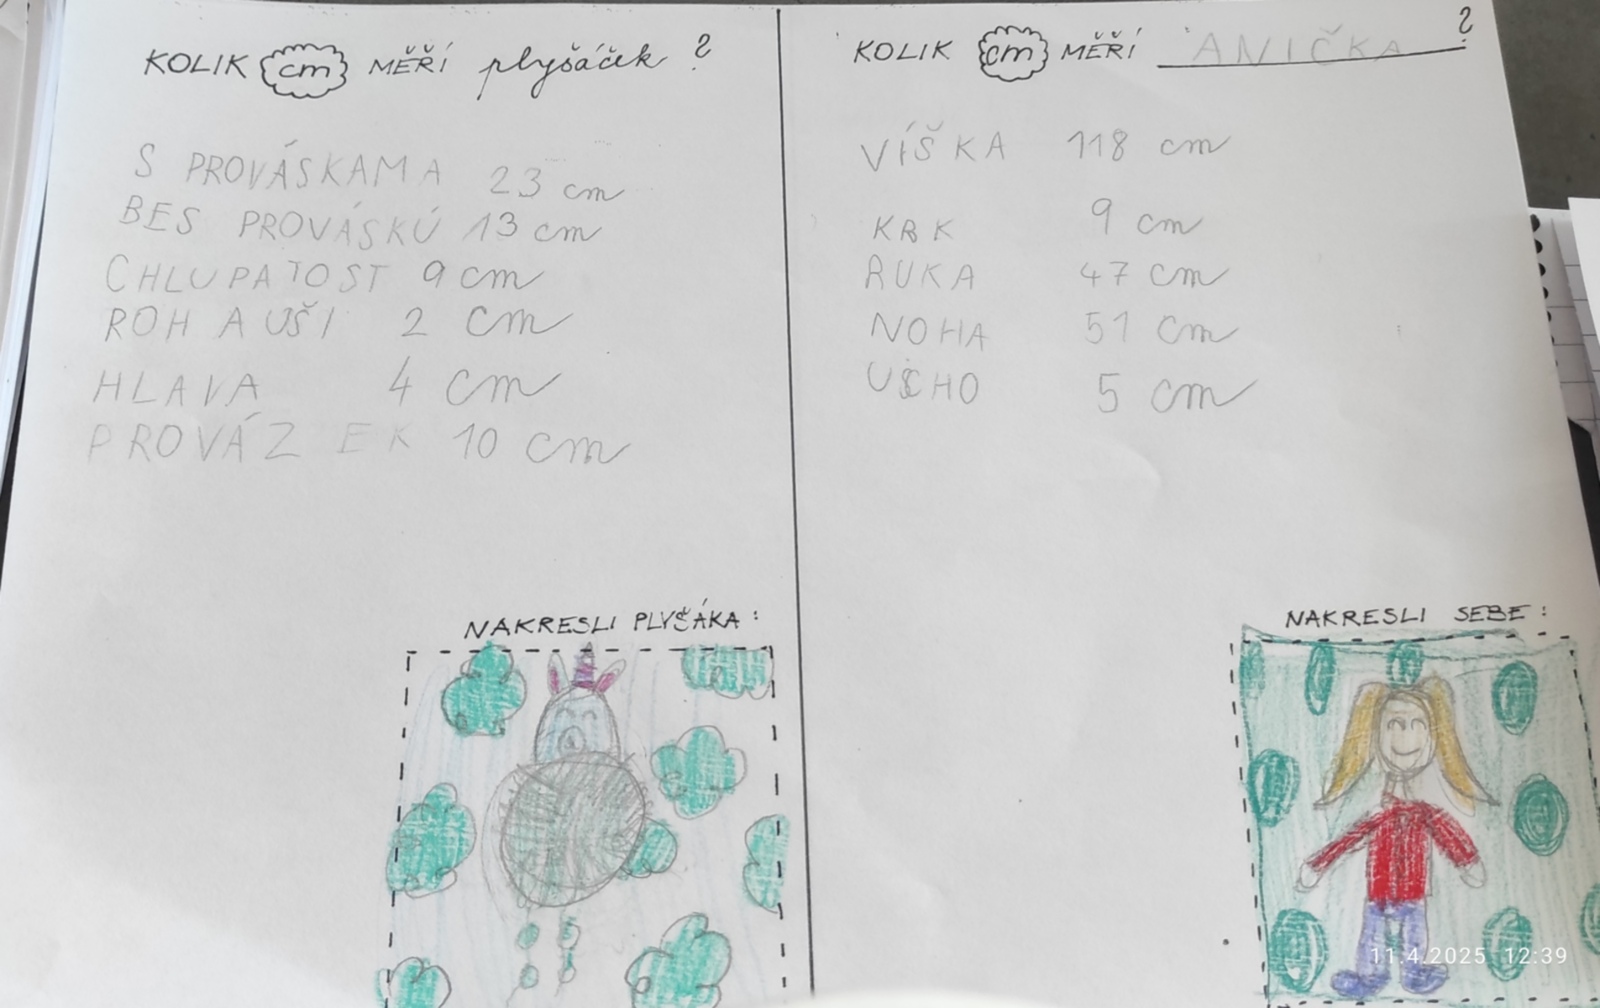 KOLIK cm MĚŘÍ plyšáček ?
S PROVÁSKAMA 23 cm
BES PROVÁSKŮ 13 cm
CHLUPATOST 9 cm
ROH A UŠI 2 cm
HLAVA 4 cm
PROVÁZEK 10 cm
NAKRESLI PLYŠÁKA :
KOLIK cm MĚŘÍ ANIČKA ?
VÍŠKA 118 cm
KRK 9 cm
RUKA 47 cm
NOHA 51 cm
UCHO 5 cm
NAKRESLI SEBE :
11.4.2025 12:39